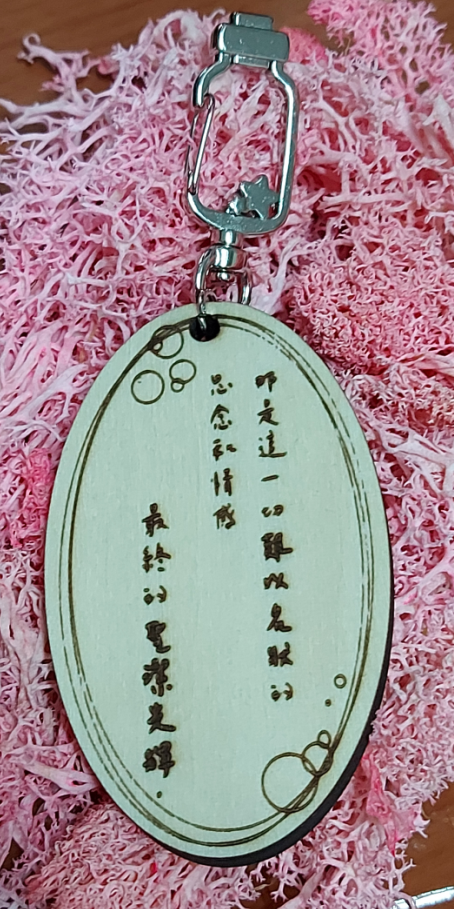 即是這一切難以名狀的
思念和情感
最終的聖潔光輝。